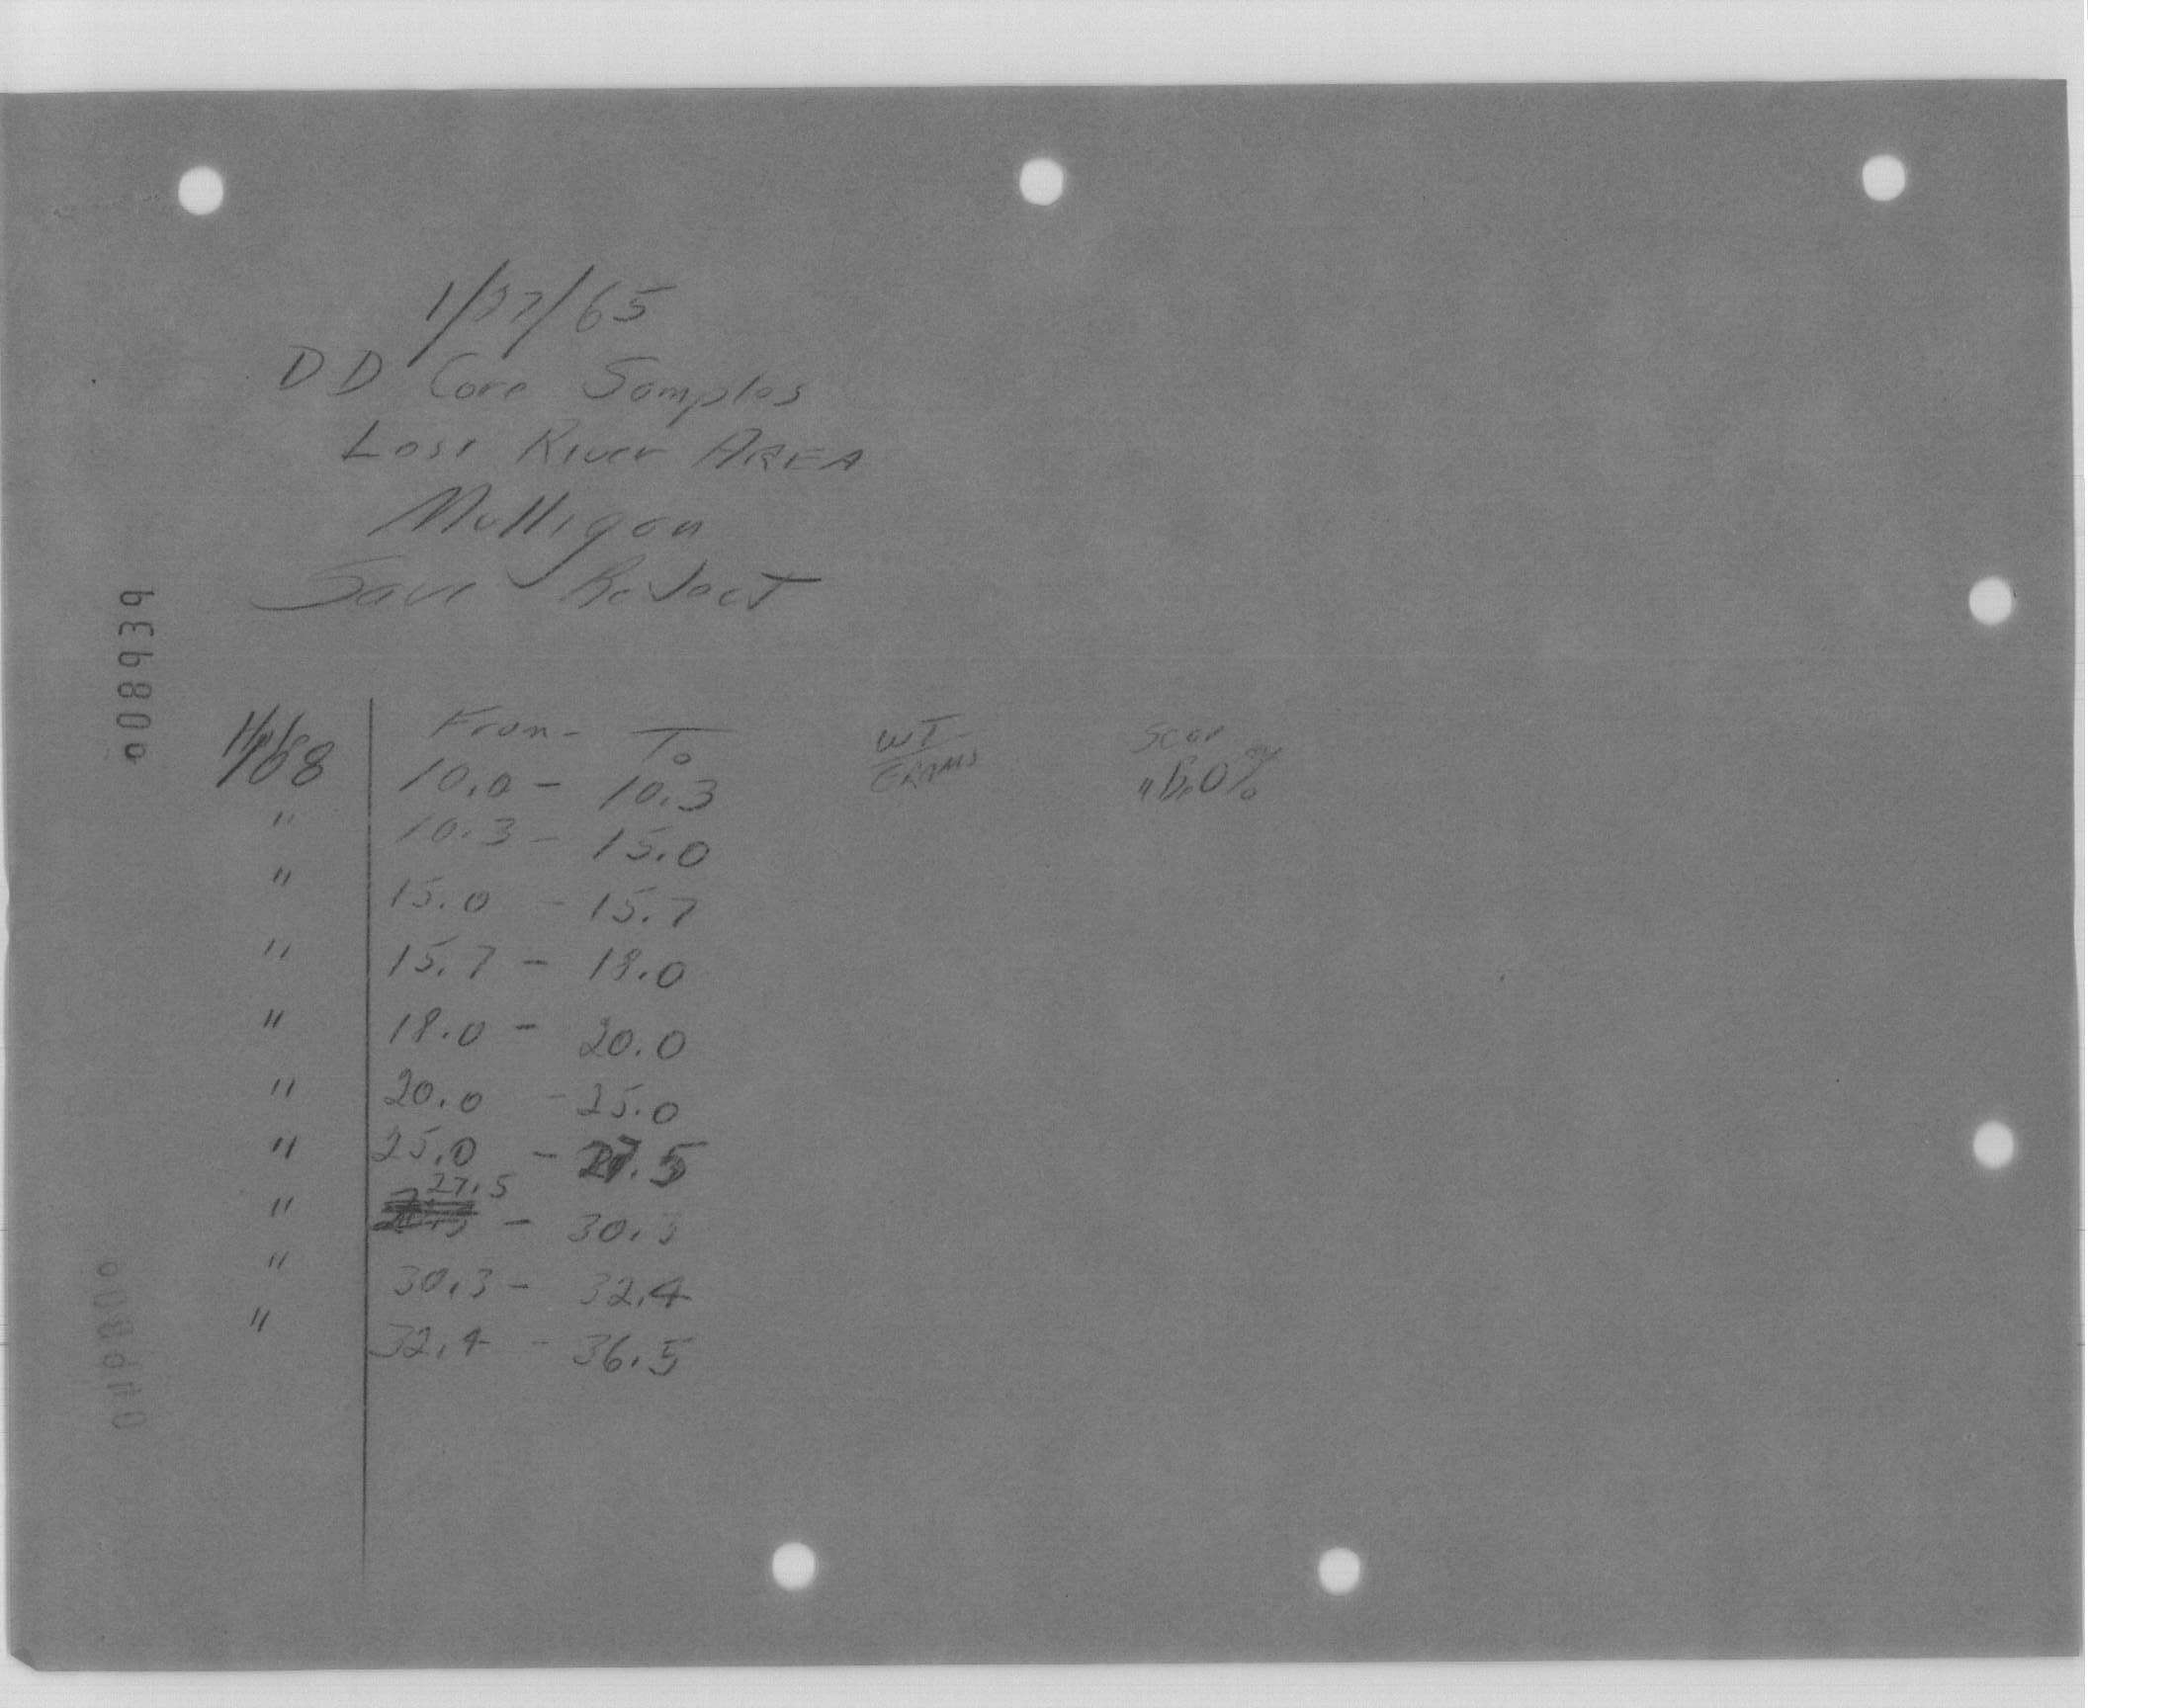 1/27/65
DD Core Samples
Lost River AREA
Mulligan
Save Reject
008939
From - To WT GRAMS
10.0 - 10.3
" 10.3 - 15.0
" 15.0 - 15.7
" 15.7 - 18.0
" 18.0 - 20.0
" 20.0 - 25.0
" 25.0 - 27.5
" 27.5 - 30.3
" 30.3 - 32.4
" 32.4 - 36.5
008940